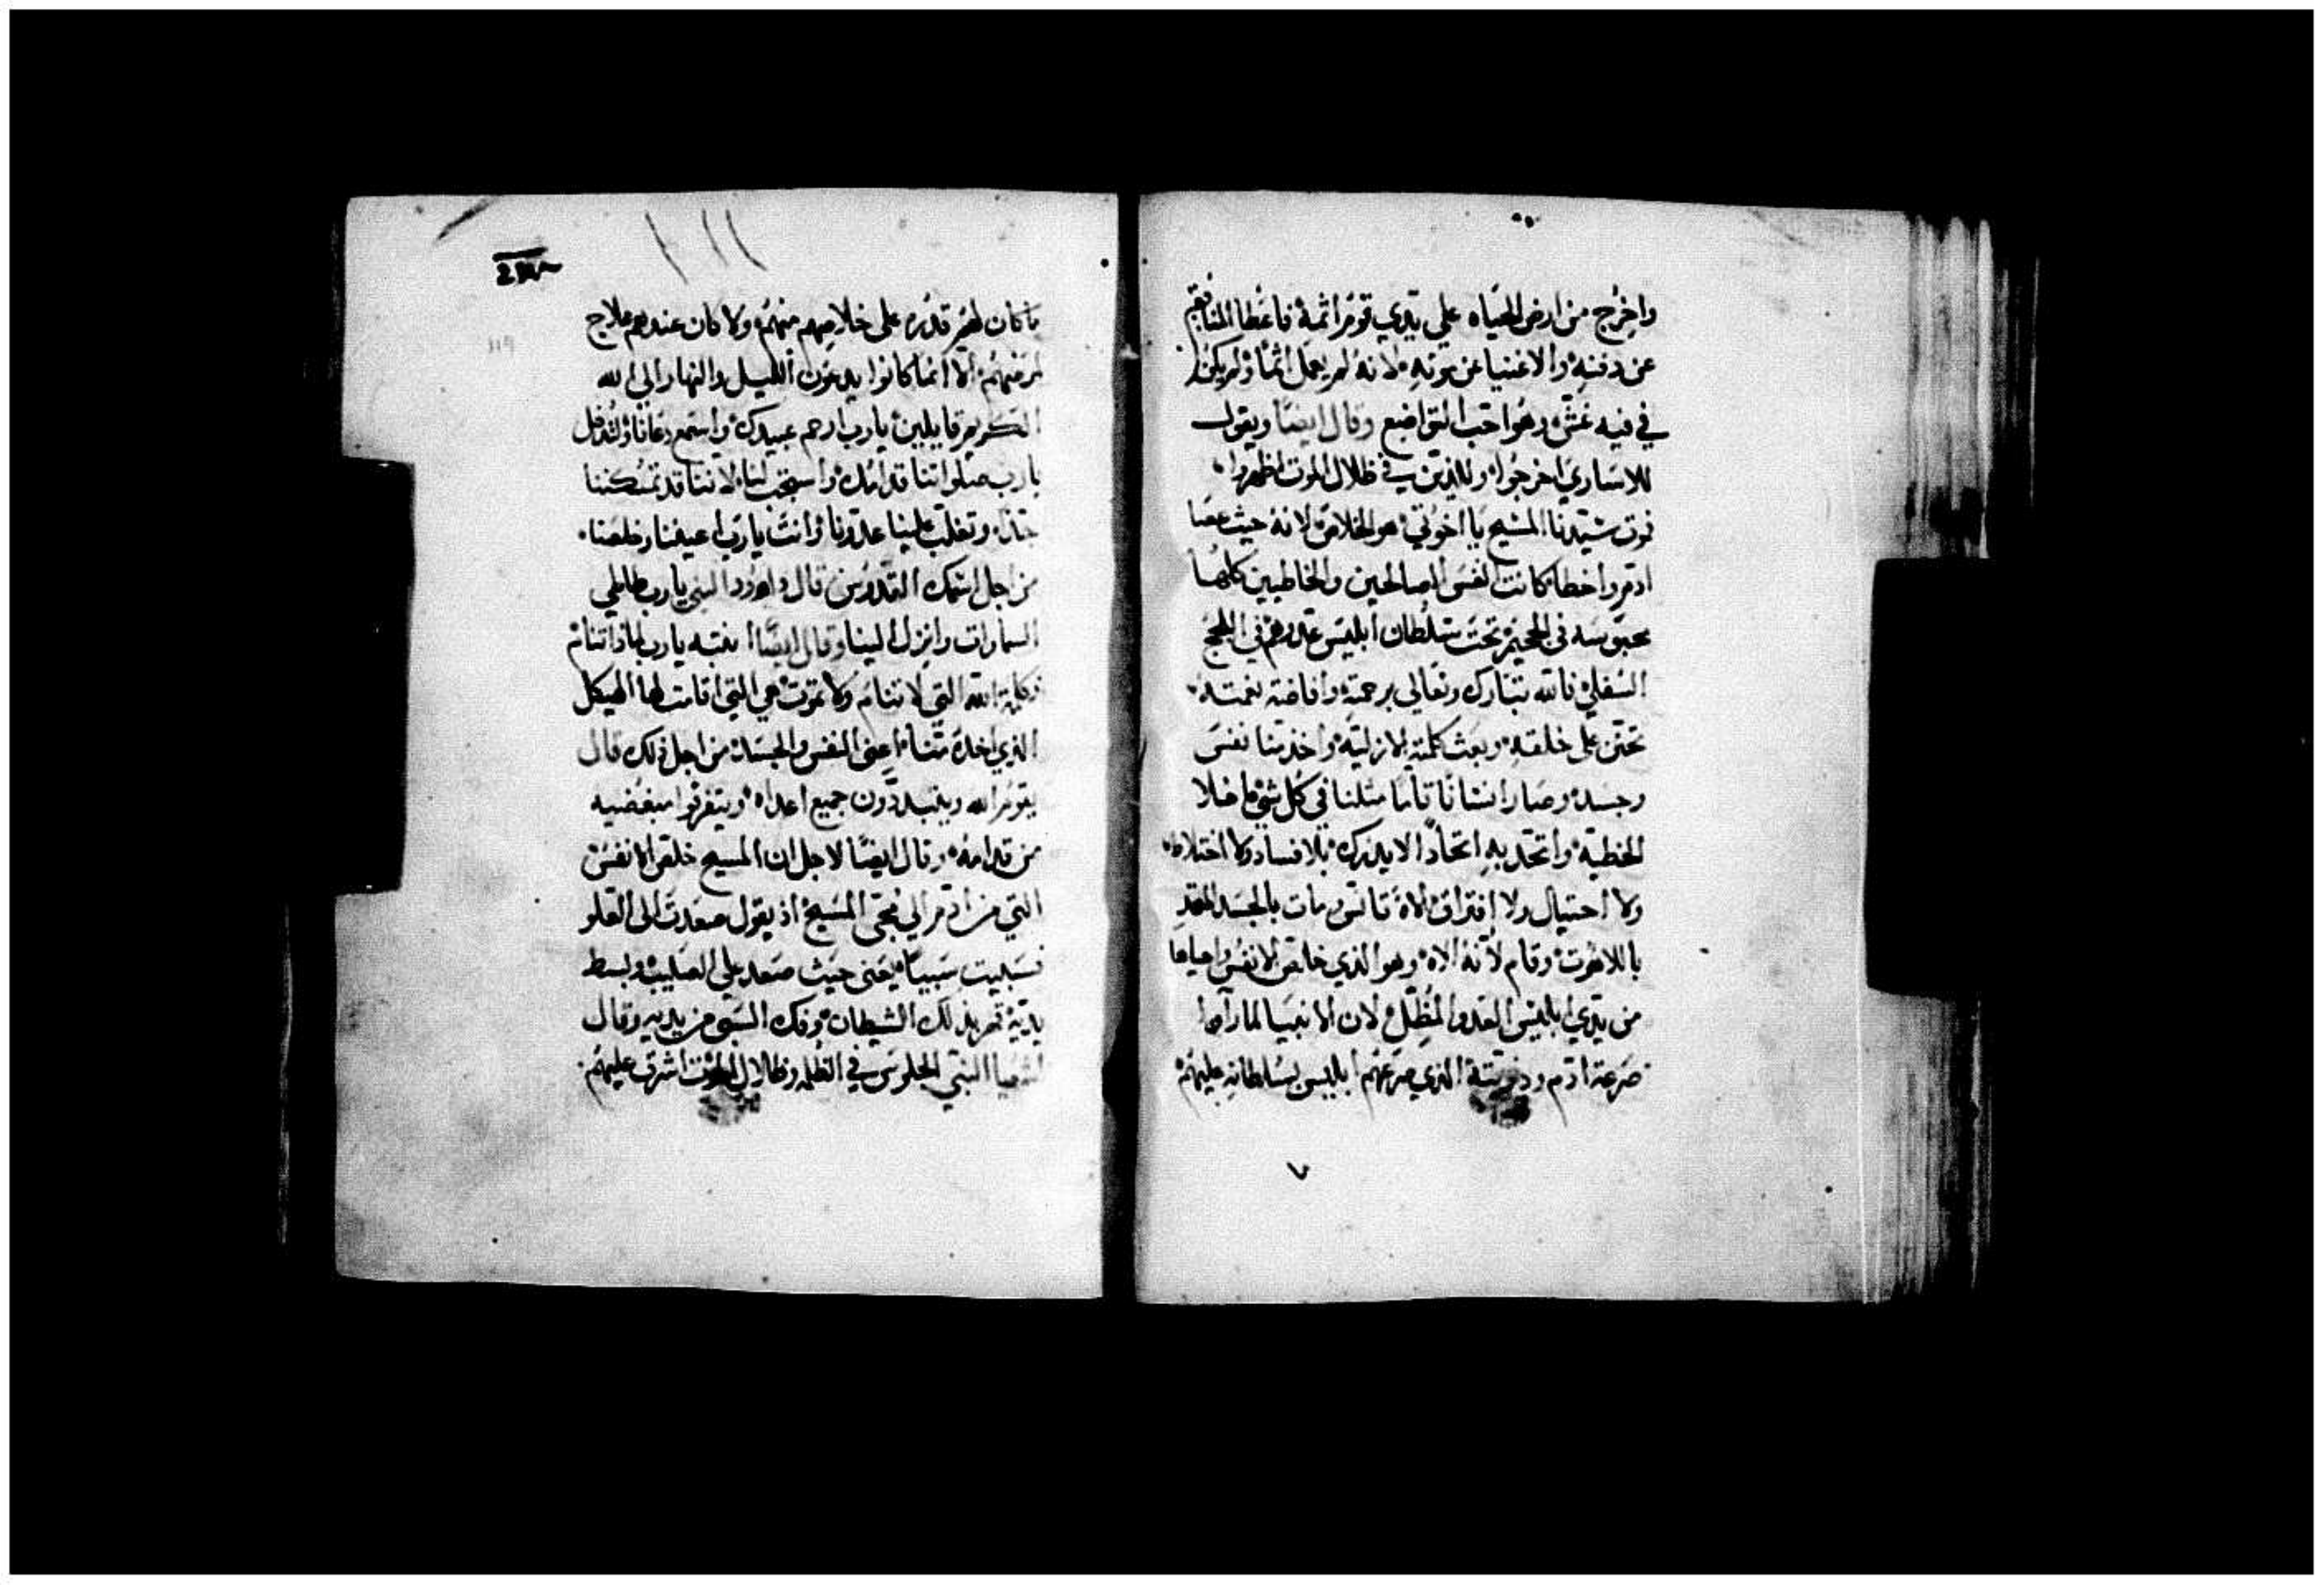 واخرج من ارض الحياه علي يدي قوم اثمة فاعطا المنافقين
عن دفنه والاغنيا عن موته لانه لم يعمل اثما ولم يكن
في فيه غش وهو احب التواضع وقال ايضا ويقول
للاساري اخرجوا وللذين في ظلال الموت اظهروا
موت سيدنا المسيح يا اخوتي هو الخلاص لانه حيث عصا
ادم واخطا كانت انفس الصالحين والخاطيين كلها
محبوسه في الجحيم تحت سلطان ابليس عدوهم في اللجج
السفلي فالله تبارك وتعالي برحمته وافاضة نعمته
تحنن على خلقه وبعث كلمته الازليه واخذ منا نفس
وجسد وصار انسانا تاما مثلنا في كل شي ما خلا
الخطية واتحد به اتحادا لا يدرك بلا فساد ولا اختلاط
ولا احتيال ولا افتراق الاه تانس ومات بالجسد المتحد
باللاهوت وقام لانه الاه وهو الذي خلص الانفس واحياها
من يدي ابليس العدو المظل لان الانبيا لما راوا
صرعة ادم وذريته الذي صرعهم ابليس بسلطانه عليهم
119
ما كان لهم قدره على خلاصهم منهم ولا كان عندهم علاج
لمرضهم الا انما كانوا يدعون الليل والنهار الي الله
الكريم قايلين يارب ارحم عبيدك واستمع دعانا ولتدخل
يارب صلواتنا قدامك واستجب لنا لاننا قد تمسكننا
جدا وتغلب علينا عدونا وانت يارب اعيننا وخلصنا
من اجل اسمك القدوس قال داوود النبي يارب طاطي
السماوات وانزل الينا وقال ايضا انتبه يارب لماذا تنام
وكلمة الله التي لا تنام ولا تموت هي التي اقامت لها الهيكل
الذي اخذه منا اعني النفس والجسد من اجل ذلك قال
يقوم الله ويتبددون جميع اعداه ويتفرقوا مبغضيه
من قدامه وقال ايضا لاجل ان المسيح خلص الانفس
التي من ادم الي مجي المسيح اذ يقول صعدت الى العلو
فسبيت سبيا يعني حيث صعد على الصليب وبسط
يديه قهر بذلك الشيطان وفك السبي من يديه وقال
اشعيا النبي الجلوس في الظلمه وظلال الموت اشرق عليهم